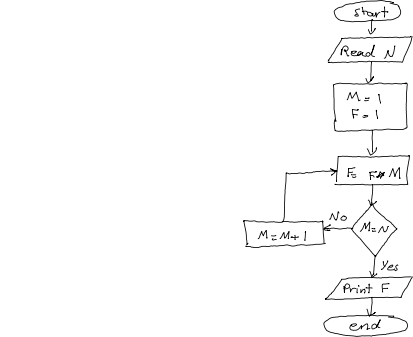 start
Read N
M = 1
F = 1
F = F * M
No
M = N
M = M + 1
Yes
Print F
end